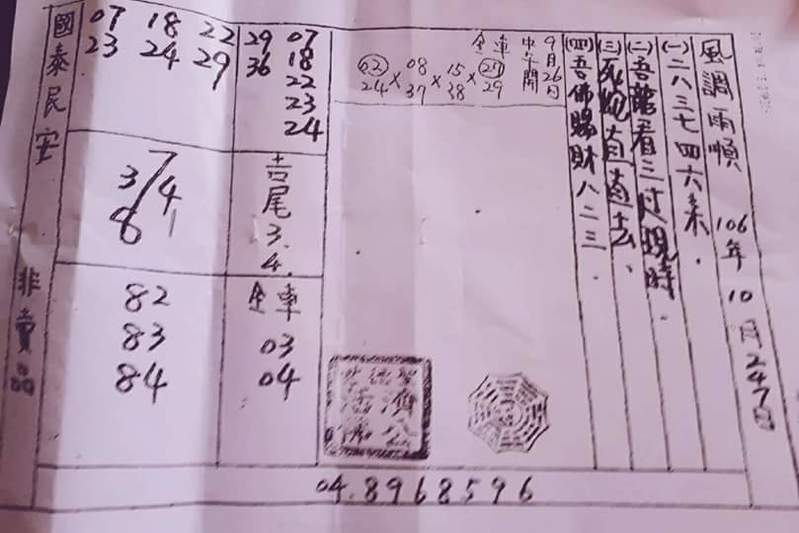 風調雨順 106年10月24日
(一)二八三七四六來.
(二)吾龍看三辻現時.
(三)死蛇直直去.
(四)吾佛賜財八二三.
9月26日
中午開
全車
02 × 08 × 15 × 27
24 37 38 29
國泰民安 非賣品
07 18 22
23 24 29
29 07
36 18
22
23
24
7
3/4
8 1
吉尾
3.
4.
82
83
84
全車
03
04
濟公
活佛
04.8968596